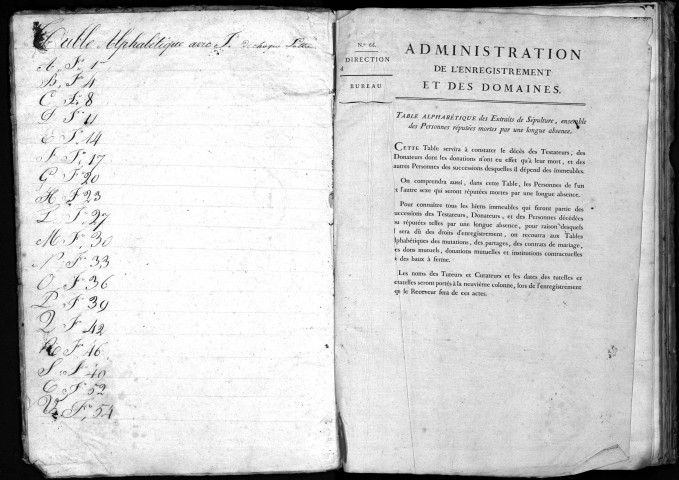 Table Alphabétique avec F.° de chaque Lettre
A, F.° 1.er
B, F.° 4
C, F.° 8
D, F.° 11
E, F.° 14
F, F.° 17
G, F.° 20
H, F.° 23
L, F.° 27
M, F.° 30
N, F.° 33
O, F.° 36
P, F.° 39
Q, F.° 42
R, F.° 46
S, F.° 40
T, F.° 52
V, F.° 54
N.° 66.
DIRECTION
d
BUREAU
ADMINISTRATION
DE L'ENREGISTREMENT
ET DES DOMAINES.
TABLE ALPHABÉTIQUE des Extraits de Sépulture, ensemble
des Personnes réputées mortes par une longue absence.
CETTE Table servira à constater le décès des Testateurs, des
Donateurs dont les donations n'ont eu effet qu'à leur mort, et des
autres Personnes des successions desquelles il dépend des immeubles.
On comprendra aussi, dans cette Table, les Personnes de l'un
et l'autre sexe qui seront réputées mortes par une longue absence.
Pour connaître tous les biens immeubles qui feront partie des
successions des Testateurs, Donateurs, et des Personnes décédées
ou réputées telles par une longue absence, pour raison desquels
il sera dû des droits d'enregistrement, on recourra aux Tables
alphabétiques des mutations, des partages, des contrats de mariage,
es dons mutuels, donations mutuelles et institutions contractuelles
t des baux à ferme.
Les noms des Tuteurs et Curateurs et les dates des tutelles et
curatelles seront portés à la neuvième colonne, lors de l'enregistrement
que le Receveur fera de ces actes.